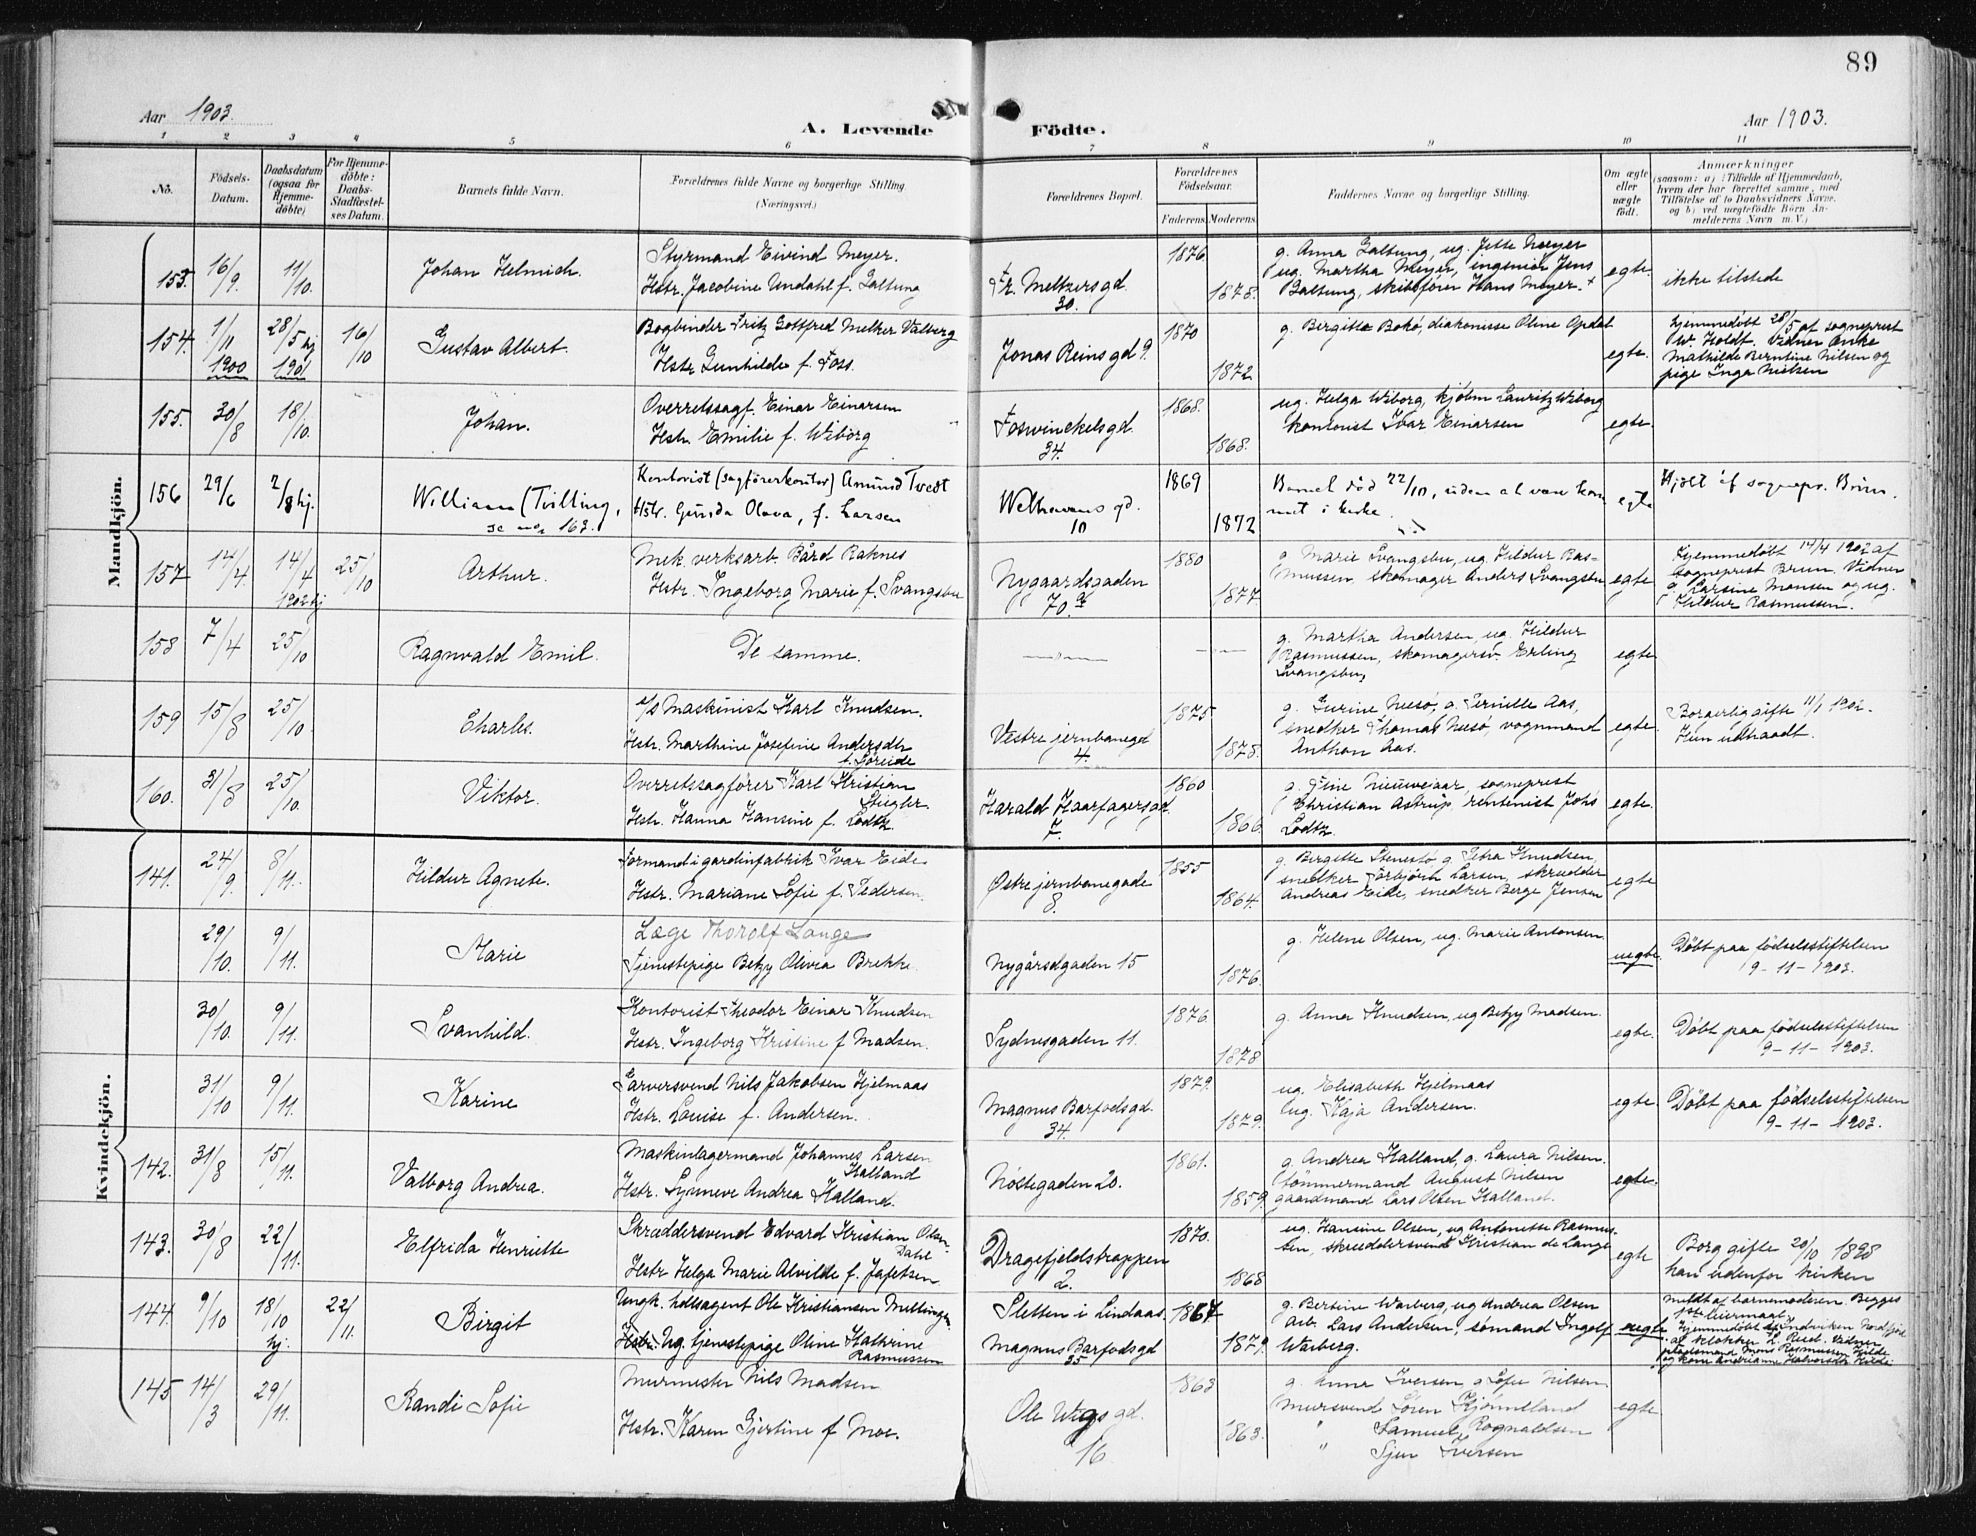 89
Aar 1903.
A. Levende Födte.
Aar 1903.
1 2 3 4 5 6 7 8 9 10 11
No.
Födsels-Datum.
Daabsdatum (ogsaa for Hjemme-döbte)
For Hjemme-döbte: Daabs-Stadfæstel-ses Datum.
Barnets fulde Navn.
Forældrenes fulde Navne og borgerlige Stilling (Næringsvei.)
Forældrenes Bopæl.
Forældrenes Födselsaar.
Faderens. Moderens.
Faddernes Navne og borgerlige Stilling.
Om ægte eller uægte födt.
Anmærkninger
(saasom: a) i Tilfælde af Hjemmedaab,
hvem der har forrettet samme, med
Tilföielse af to Daabsvidners Navne,
og b) ved uægtefödte Börn An-
melderens Navn m. V.)
Mandkjön.
153. 16/9. 11/10. Johan Helmich.
Styrmand Eivind Meyer.
Hstr. Jacobine Undahl f. Galtung
Fr. Meltzersgd. 30.
1876 1878.
g. Anna Galtung, ug. Jette Meyer
ug. Martha Meyer, ingeniör Jens
Galtung, skibsförer Hans Meyer. +
egte. ikke tilstede
154. 1/11 1900 28/5 hj 1901 16/10 Gustav Albert.
Bogbinder Fritz Gottfred Melker Valberg
Hstr Gunhilde f. Foss.
Jonas Reinsgd 9.
1870 1872
g. Birgitte Bokö, diakonisse Oline Apdal
egte.
hjemmedöbt 28/5 af sogneprest
W. Holdt. Vidner enke
Mathilde Berntine Nilsen og
pige Inga Nielsen
155. 30/8 18/10. Johan.
Overretssagf. Einar Einarsen
Hstr. Emilie f. Wiborg
Foswinckelsgd. 34.
1868. 1868.
ug. Helga Wiborg, kjöbm Lauritz Wiborg
kontorist Ivar Einarsen
egte.
156 29/6 2/8 hj. William (Tvilling, se 163.
Kontorist (sagförerkontor) Amund Tvedt
Hstr. Gurida Olava, f. Larsen
Welhavens gd. 10
1869 1872
Barnet död 22/10, uden at være kom-
met i kirke.
egte
Hjdöbt af sognepr. Brun.
157 14/4. 14/4 1902 hj 25/10 Arthur.
Mek. verksarb. Bård Raknes
Hstr. Ingeborg Marie f. Svangsbu
Nygaardsgaden 70 a
1880 1877
g. Marie Svangsbu, ug. Hildur Ras-
mussen, skomager Anders Svangsbu
egte
Hjemmedöbt 14/4 1902 af
sogneprest Brun. Vidner
g. Larsine Monsen og ug.
Hildur Rasmussen.
158 7/4 25/10 Ragnvald Emil.
De samme.
g. Martha Andersen, ug. Hildur
Rasmussen, skomagersv. Erling
Svangsbu,
egte
159 15/8 25/10. Charles.
Maskinist Karl Knudsen.
Hstr. Marthine Josefine Andersdtr
f. Söreide
Vestre jernbanegd 4.
1875 1878.
g. Gurine Nesö, g. Pernille Aas,
snedker Thomas Nesö, vognmand
Anthon Aas.
egte.
Borgerlig gifte 11/1 1902.
Hun udtraadt.
160. 31/8 25/10. Viktor.
Overretssagförer Karl Kristian
Stiegler
Hstr. Hanna Hansine f. Lodtz.
Harald Haarfagersgd 7.
1860 1866.
g. Fine Nieuwejaar, sogneprest
Christian Astrup, rentenist Johs
Lodtz
egte.
Kvindekjön.
141. 24/9. 8/11. Hildur Agnete.
Formand i gardinfabrik Ivar Eide
Hstr. Mariane Sofie f. Pedersen.
Østre jernbanegade 8.
1855 1864.
g. Birgitte Stensö, g. Petra Knudsen,
snedker Torbjörn Larsen, skrædder
Andreas Eide, snedker Berge Jensen
egte
29/10. 9/11. Marie
Læge Thorolf Lange
Tjenestepige Betzy Olivia Brekke
Nygårdsgaden 15
1876.
g. Helene Olsen, ug. Marie Antonsen.
uegte.
Döbt paa födselsstiftelsen
9-11-1903.
30/10. 9/11. Svanhild.
Kontorist Theodor Einar Knudsen
Hstr. Ingeborg Kristine f Madsen.
Sydnesgaden 11.
1876. 1878
g. Anna Knudsen, ug Betzy Madsen.
egte.
Döbt paa födselsstiftelsen
9-11-1903.
31/10 9/11. Karine
Garversvend Nils Jakobsen Hjelmaas
Hstr. Louise f. Andersen.
Magnus Barfodsgd. 34.
1879. 1879.
ug. Elisabeth Hjelmaas
ug. Kaja Andersen.
egte.
Döbt paa födselsstiftelsen
9-11-1903.
142. 31/8 15/11. Valborg Andrea.
Maskinlagermand Johannes Larsen
Halland
Hstr. Synneve Andrea Halland.
Nöstegaden 20.
1861. 1859.
g. Andrea Halland, g. Laura Nilsen.
tömmermand August Nilsen
gaardmand Lars Olsen Halland.
egte.
143. 30/8 22/11. Elfrida Henriette
Skræddersvend Edvard Kristian Olsen
Dahl
Hstr Helga Marie Alvilde f. Jafetsen
Dragefjeldstrappen 2.
1870. 1868
ug. Hansine Olsen, ug Antonette Rasmus-
sen, skræddersvend Kristian de Lange
egte
Borg gifte 20/10 1898
han udenfor kirken
144. 9/10 18/10 hj. 22/11. Birgit
Ungk. Ole Kristiansen Mellingen
Hstr. Ug. tjenestepige Oline Kathrine
Rasmussen
Sletten i Lindaas.
Magnus Barfodsgd 35
1867 1879.
g. Bertine Warberg, ug Andrea Olsen
arb. Lars Andersen, sömand Ingolf
Warberg.
uegte
Meldt af barnemoderen. Begges
1ste leiermaal.
Hjemmedöbt i Indviken Nordfjord
af klokker L. Rud. Vidner
pladsmand Mons Rasmussen Hilde
og kone Andrianne Halvorsdtr Hilde
145 14/3 29/11. Randi Sofie
Murmester Nils Madsen
Hstr. Karen Gjertine f Moe.
Ole Wigs gd. 16
1863 1863.
g. Anna Iversen, g Sofie Nilsen.
Mursvend Sören Kjönneland
" Samuel Rognaldsen
" Sjur Iversen
egte.